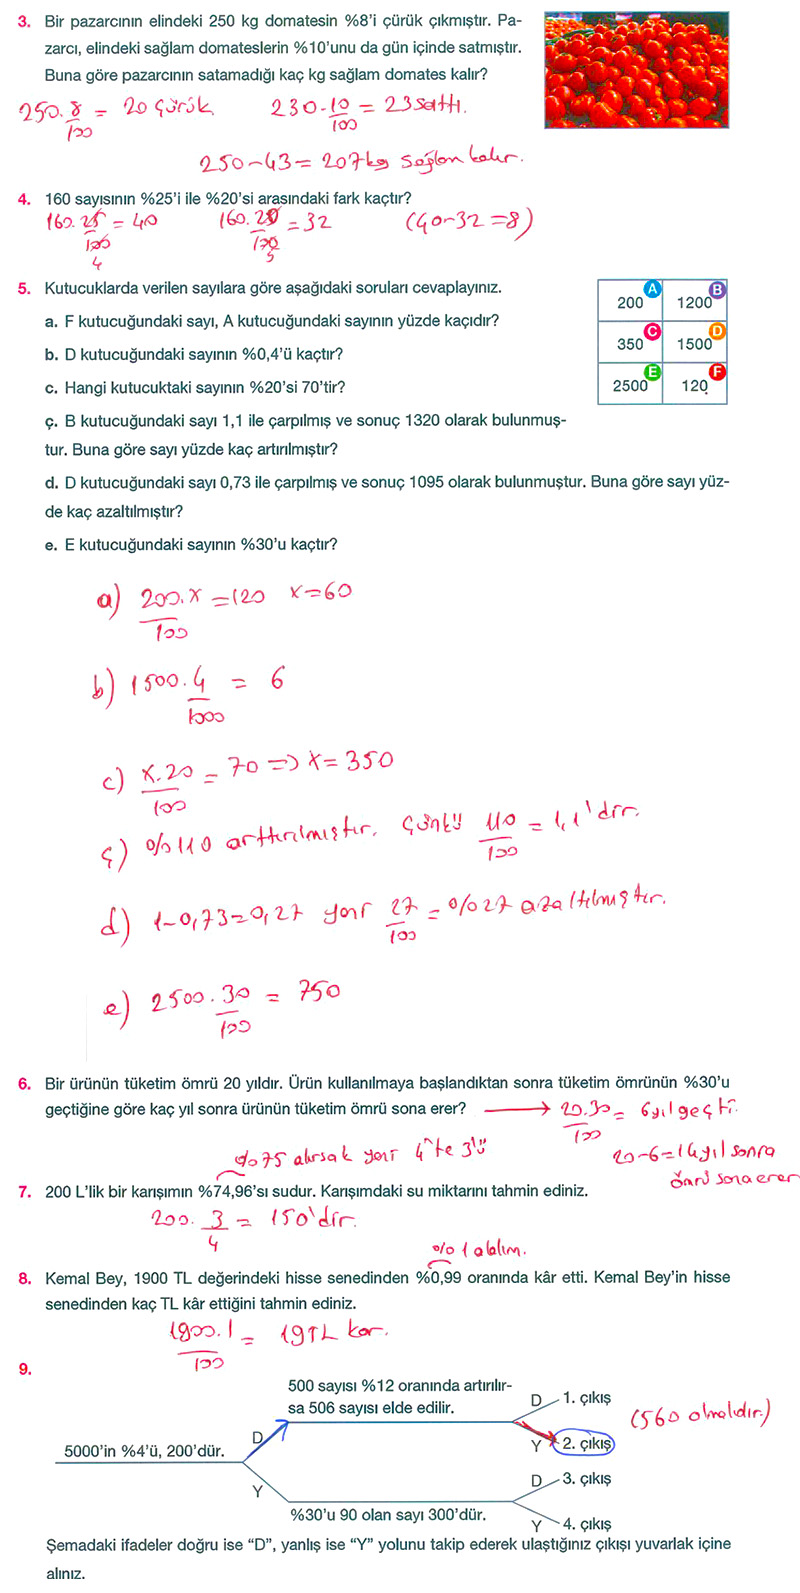 3. Bir pazarcının elindeki 250 kg domatesin %8'i çürük çıkmıştır. Pa-
zarcı, elindeki sağlam domateslerin %10'unu da gün içinde satmıştır.
Buna göre pazarcının satamadığı kaç kg sağlam domates kalır?
250.8/100 = 20 çürük 230.10/100 = 23 sattı.
250-43 = 207 kg sağlam kalır.
4. 160 sayısının %25'i ile %20'si arasındaki fark kaçtır?
160.25/100 = 40 160.20/100 = 32 (40-32=8)
4 5
5. Kutucuklarda verilen sayılara göre aşağıdaki soruları cevaplayınız.
A 200 B 1200
C 350 D 1500
E 2500 F 120
a. F kutucuğundaki sayı, A kutucuğundaki sayının yüzde kaçıdır?
b. D kutucuğundaki sayının %0,4'ü kaçtır?
c. Hangi kutucuktaki sayının %20'si 70'tir?
ç. B kutucuğundaki sayı 1,1 ile çarpılmış ve sonuç 1320 olarak bulunmuş-
tur. Buna göre sayı yüzde kaç artırılmıştır?
d. D kutucuğundaki sayı 0,73 ile çarpılmış ve sonuç 1095 olarak bulunmuştur. Buna göre sayı yüz-
de kaç azaltılmıştır?
e. E kutucuğundaki sayının %30'u kaçtır?
a) 200.x/100 = 120 x=60
b) 1500.4/1000 = 6
c) x.20/100 = 70 => x = 350
ç) %110 arttırılmıştır. Çünkü 110/100 = 1,1'dir.
d) 1-0,73=0,27 yani 27/100 = %27 azaltılmıştır.
e) 2500.30/100 = 750
6. Bir ürünün tüketim ömrü 20 yıldır. Ürün kullanılmaya başlandıktan sonra tüketim ömrünün %30'u
geçtiğine göre kaç yıl sonra ürünün tüketim ömrü sona erer? → 20.30/100 = 6 yıl geçti.
20-6=14 yıl sonra
ömrü sona erer
%75 alırsak yani 4'te 3'ü
7. 200 L'lik bir karışımın %74,96'sı sudur. Karışımdaki su miktarını tahmin ediniz.
200.3/4 = 150'dir.
%1 alalım.
8. Kemal Bey, 1900 TL değerindeki hisse senedinden %0,99 oranında kâr etti. Kemal Bey'in hisse
senedinden kaç TL kâr ettiğini tahmin ediniz.
1900.1/100 = 19 TL kar.
9.
500 sayısı %12 oranında artırılır-
sa 506 sayısı elde edilir.
D 1. çıkış
(560 olmalıdır.)
D
Y 2. çıkış
5000'in %4'ü, 200'dür.
D 3. çıkış
Y
%30'u 90 olan sayı 300'dür.
Y 4. çıkış
Şemadaki ifadeler doğru ise “D”, yanlış ise “Y” yolunu takip ederek ulaştığınız çıkışı yuvarlak içine
alınız.